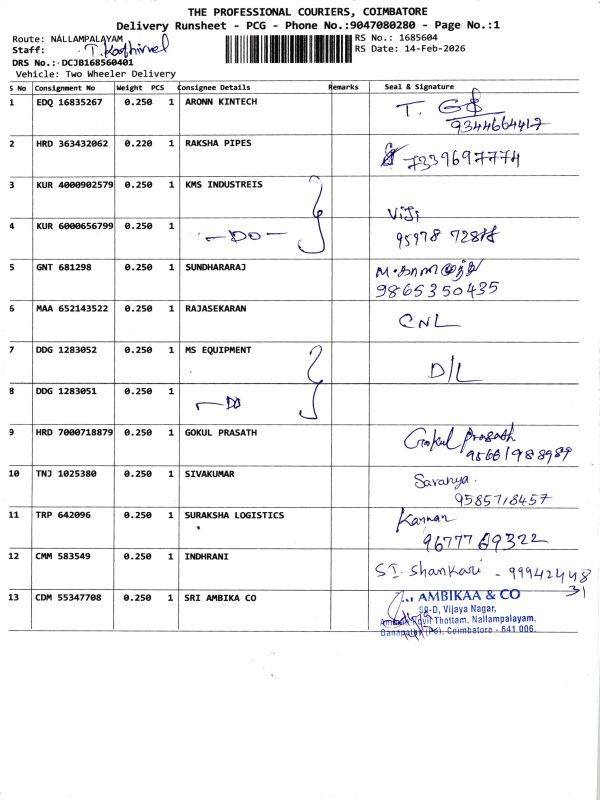 THE PROFESSIONAL COURIERS, COIMBATORE
Delivery Runsheet - PCG - Phone No.:9047080280 - Page No.:1
Route: NALLAMPALAYAM
RS No.: 1685604
Staff: T. Kathirvel
RS Date: 14-Feb-2026
DRS No.: DCJB168560401
Vehicle: Two Wheeler Delivery
S No Consignment No Weight PCS Consignee Details Remarks Seal & Signature
1 EDQ 16835267 0.250 1 ARONN KINTECH T.
9344664417
2 HRD 363432062 0.220 1 RAKSHA PIPES 7339697774
3 KUR 4000902579 0.250 1 KMS INDUSTREIS
Viji
4 KUR 6000656799 0.250 1 -DO-
95978 728
5 GNT 681298 0.250 1 SUNDHARARAJ
9865350435
6 MAA 652143522 0.250 1 RAJASEKARAN CNL
7 DDG 1283052 0.250 1 MS EQUIPMENT D/L
8 DDG 1283051 0.250 1 -DO
9 HRD 7000718879 0.250 1 GOKUL PRASATH Gokul Prasath
9566198 8989
10 TNJ 1025380 0.250 1 SIVAKUMAR Saranya.
9585718457
11 TRP 642096 0.250 1 SURAKSHA LOGISTICS Kannan
9677769322
12 CMM 583549 0.250 1 INDHRANI S.I. Shankari - 99942448
31
13 CDM 55347708 0.250 1 SRI AMBIKA CO AMBIKAA & CO
-D, Vijaya Nagar,
Kovil Thottam, Nallampalayam,
Ganapathy (Po), Coimbatore - 641 006.